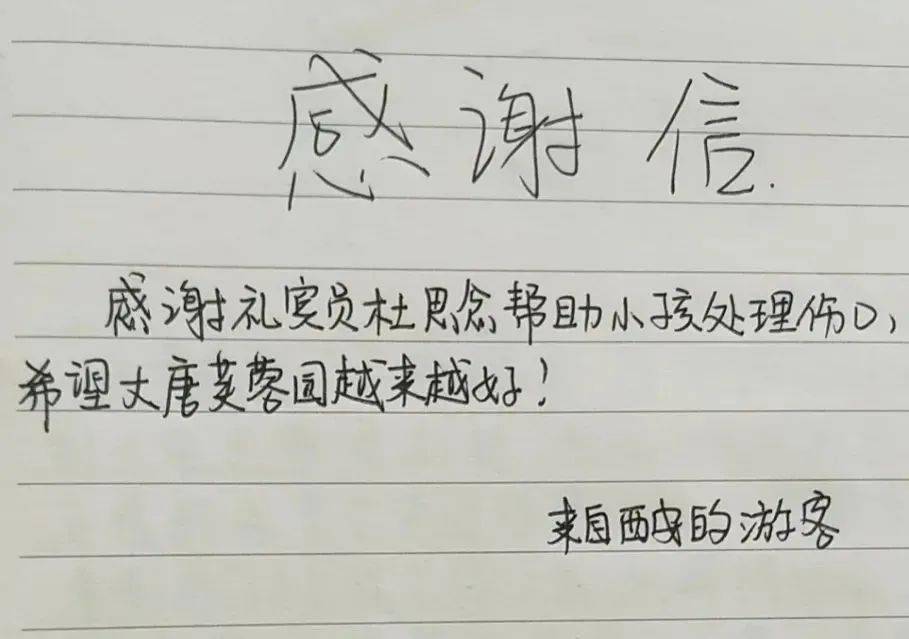 感谢信.
感谢礼宾员杜思念帮助小孩处理伤口,
希望大唐芙蓉园越来越好!
来自西安的游客